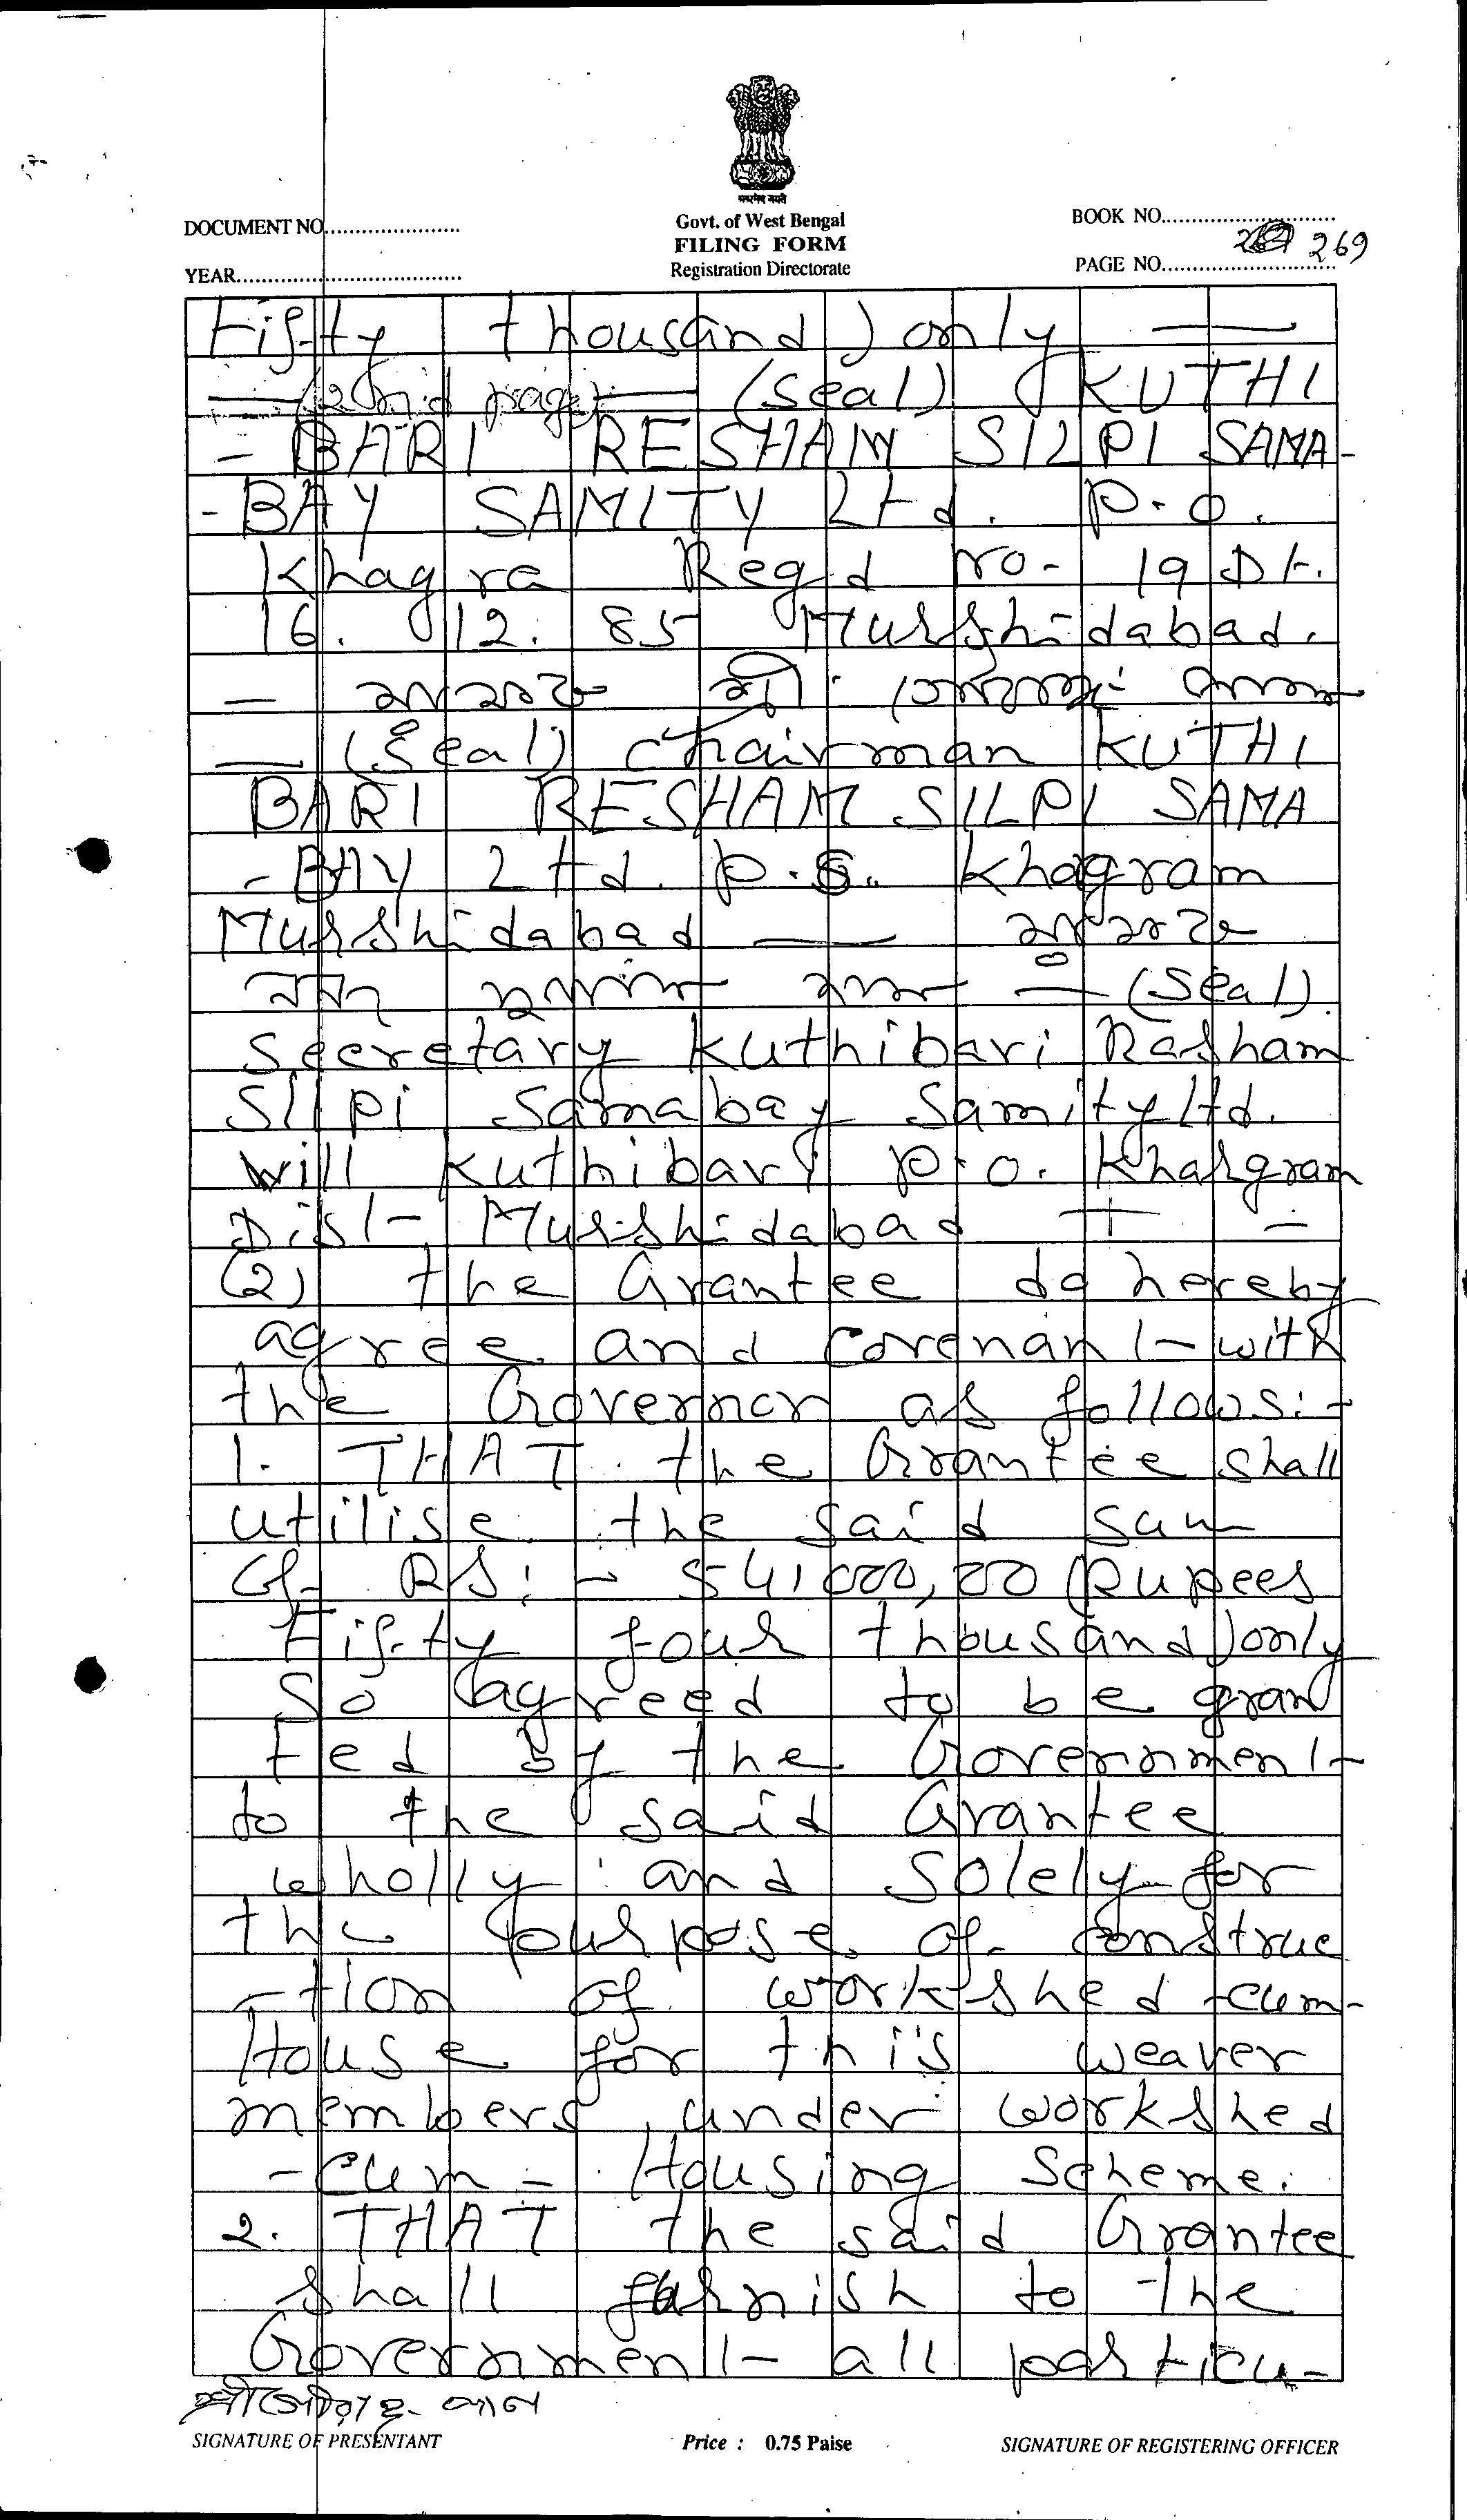 सत्यमेव जयते
DOCUMENT NO......................
Govt. of West Bengal
BOOK NO.............................
FILING FORM
269
YEAR......................................
Registration Directorate
PAGE NO.............................
Fifty thousand) only —
— (2nd page) — (seal) KUTHI
- BARI RESHAM SILPI SAMA-
- BAY SAMITY Ltd. P.O.
Khagra Regd no- 19 Dt.
16. 12. 85 Murshidabad.
—
— (Seal) Chairman KUTHI
BARI RESHAM SILPI SAMA
- BAY Ltd. P.S. Khagram
Murshidabad —
— (Seal).
Secretary Kuthibari Rasham
Silpi Samabay Samity ltd.
Will Kuthibari P.O. Khargram
Dist- Murshidabad — —
(2) the Grantee do hereby
agree and covenant with
the Governor as follows:-
1. THAT the Grantee shall
utilise the said sum
of RS:- 54,000,00 (Rupees
Fifty four thousand) only
So agreed to be gran
ted by the Government
to the said Grantee
wholly and solely for
the purpose of construc
-tion of workshed -cum-
House for this weaver
members under workshed
-cum- Housing Scheme.
2. THAT the said Grantee
shall furnish to the
Government all particu-
SIGNATURE OF PRESENTANT
Price : 0.75 Paise
SIGNATURE OF REGISTERING OFFICER